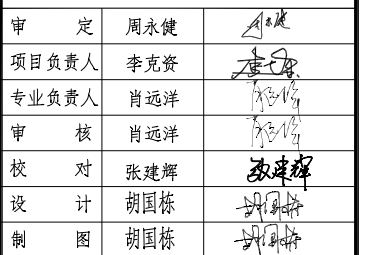 审 定 周永健 周永健
项目负责人 李克资 李克资
专业负责人 肖远洋 肖远洋
审 核 肖远洋 肖远洋
校 对 张建辉 张建辉
设 计 胡国栋 胡国栋
制 图 胡国栋 胡国栋